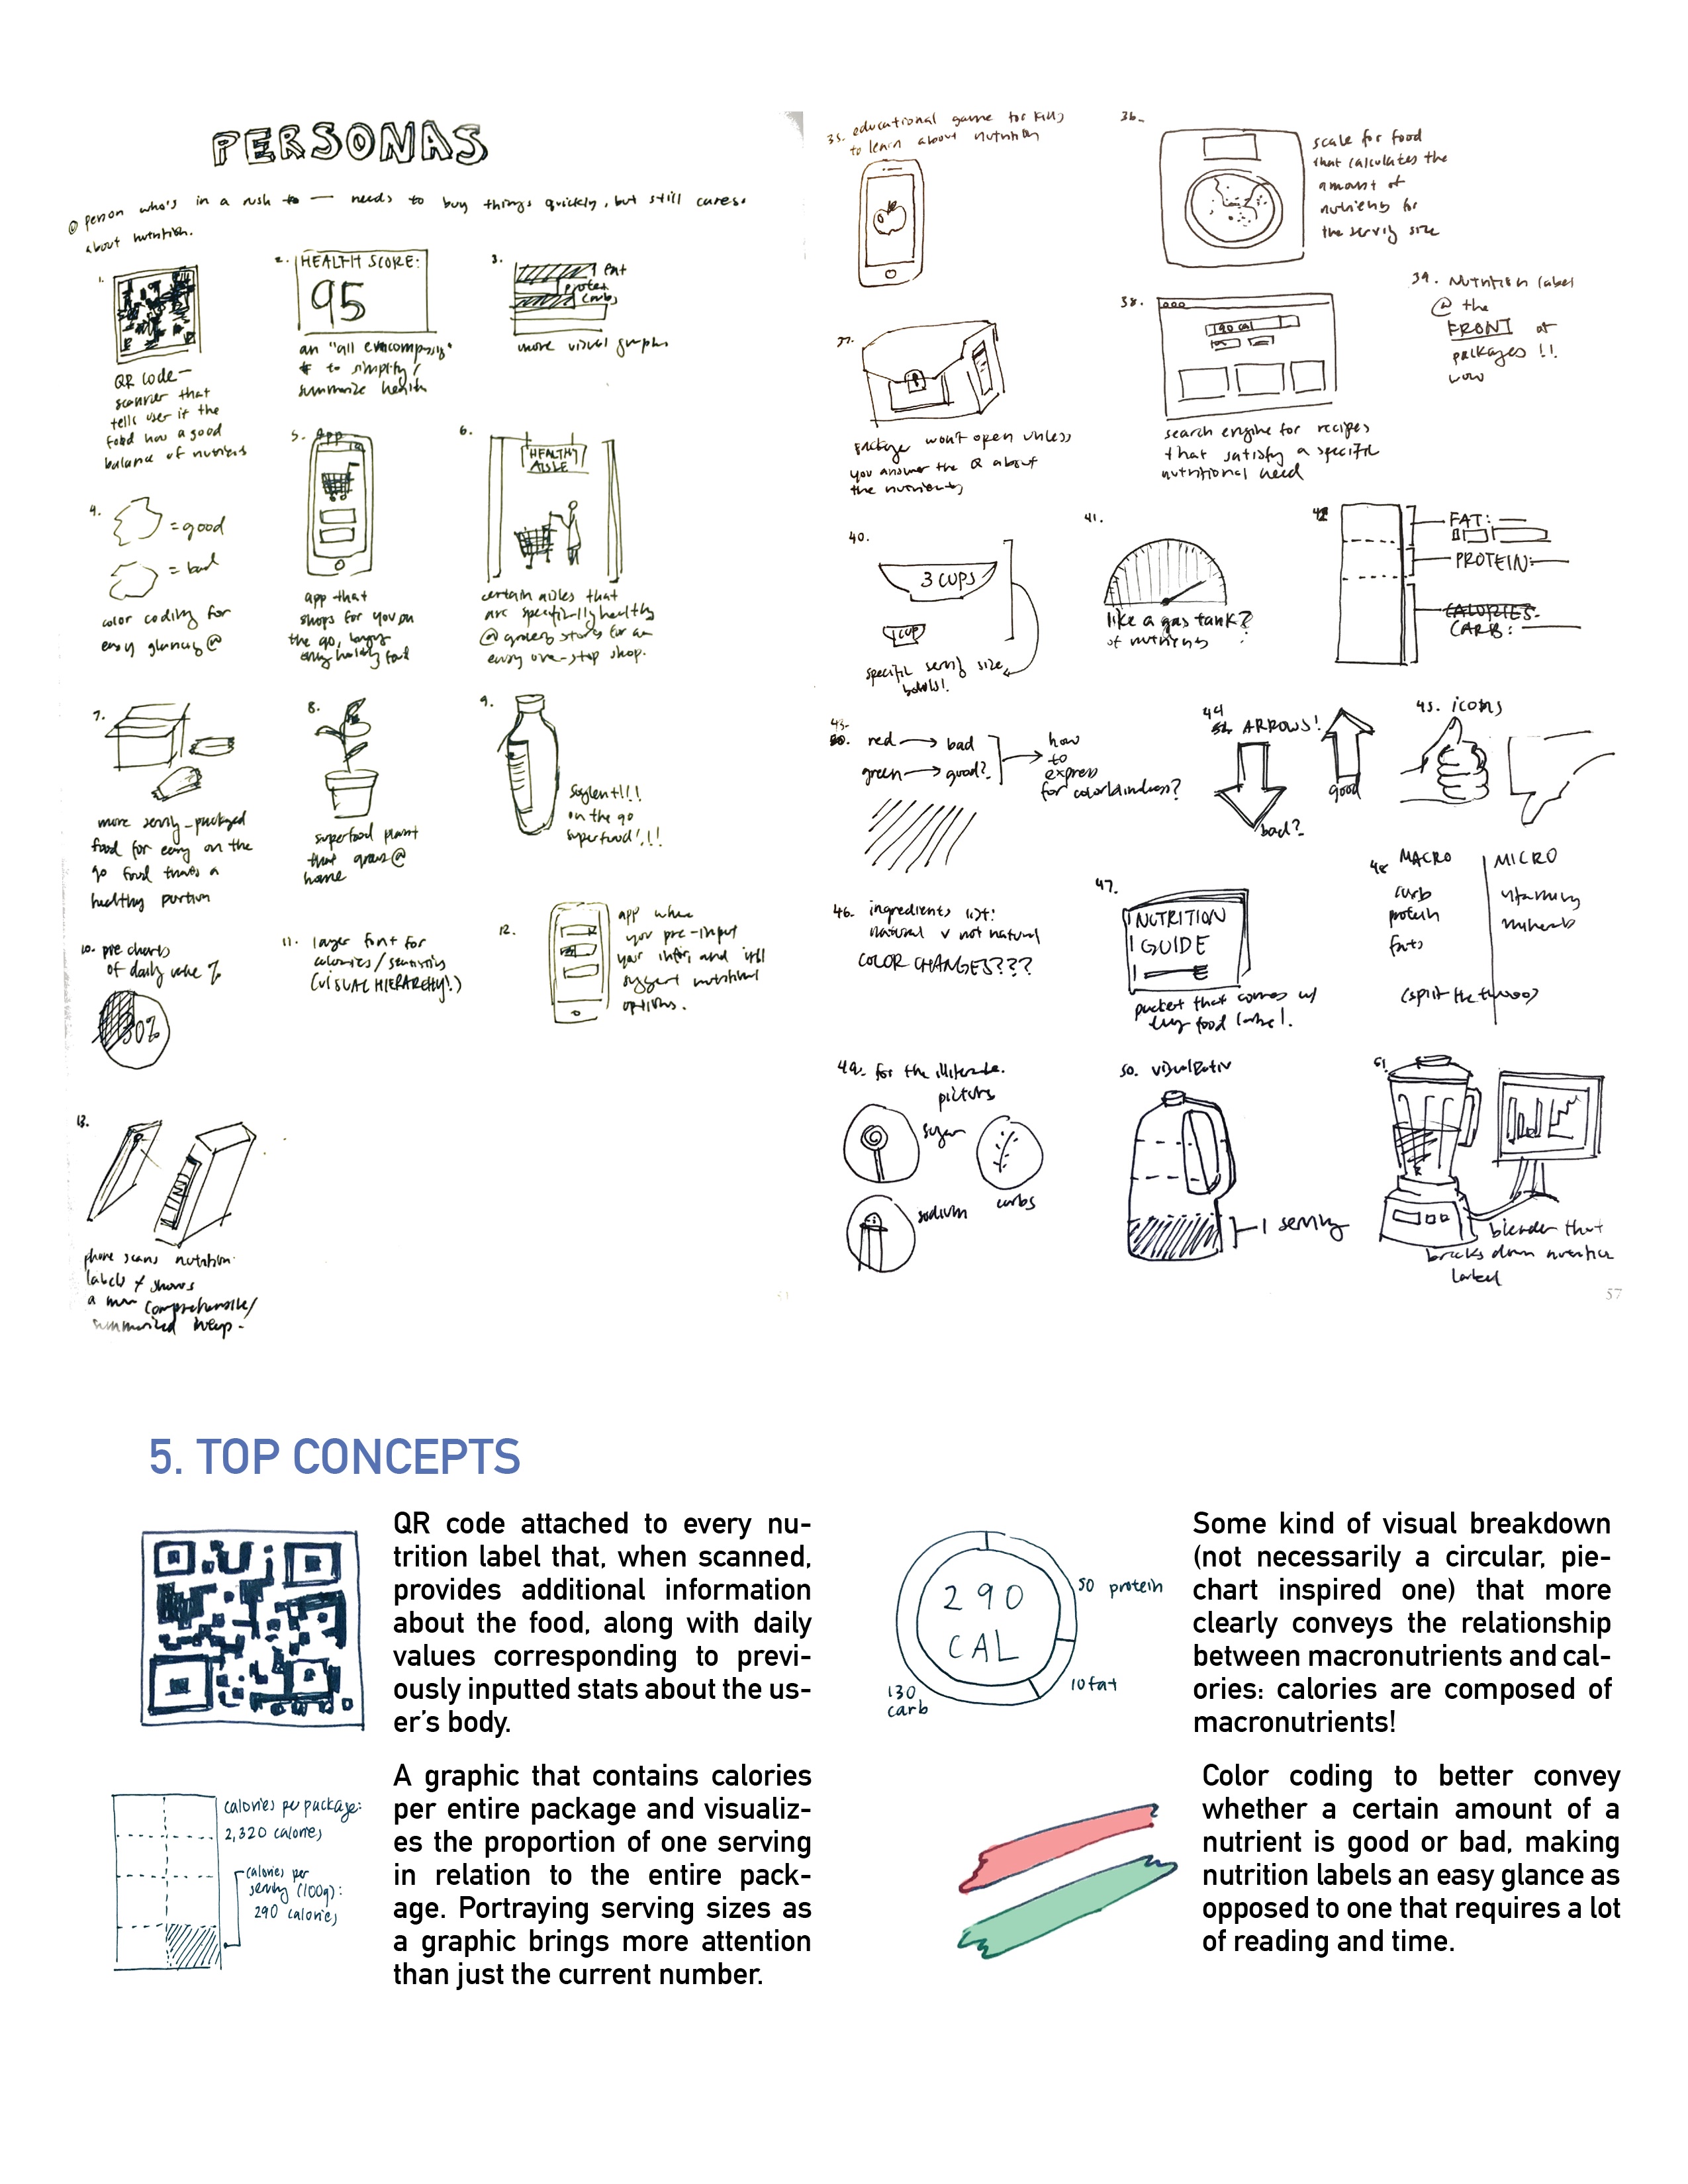 PERSONAS
@ person who's in a rush to — needs to buy things quickly, but still cares.
about nutrition.
1.
QR code —
scanner that
tells user if the
food has a good
balance of nutrients
2. HEALTH SCORE:
95
an "all encompassing"
# to simplify/
summarize health
3.
fat
protein
carbs
more visual graphs
4.
= good
= bad
color coding for
easy glancing @
5. App
app that
shops for you on
the go, buying
only healthy food
6.
HEALTHY
AISLE
certain aisles that
are specifically healthy
@ grocery stores for an
easy one-stop shop.
7.
more serving-packaged
food for easy on the
go food that's a
healthy portion
8.
superfood plant
that grows @
home
9.
Soylent!!!
on the go
superfood!!!
10. pie charts
of daily value %
30%
11. larger font for
calories/servings
(VISUAL HIERARCHY!)
12.
app where
you pre-input
your info, and it'll
suggest nutritional
options.
13.
phone scans nutrition
labels & shows
a more comprehensive/
summarized
35. educational game for kids
to learn about nutrition
36.
scale for food
that calculates the
amount of
nutrients for
the serving size
37.
package won't open unless
you answer the Q about
the nutrients
38.
190 cal
search engine for recipes
that satisfy a specific
nutritional need
39. Nutrition label
@ the
FRONT of
packages !!
wow
40.
3 CUPS
1 CUP
specific serving size
bowls!
41.
like a gas tank?
of nutrients
42
FAT:
PROTEIN:
CALORIES:
CARB:
43.
red → bad
green → good?
how
to
express
for colorblindness?
44
ARROWS!
bad?
good
45. icons
46. ingredients list:
natural v not natural
COLOR CHANGES???
47.
NUTRITION
GUIDE
packet that comes w/
every food label.
48
MACRO
MICRO
carb
protein
fats
vitamins
minerals
(split the two)
49. for the illiterate.
pictures
sugar
carbs
sodium
50. visualization
1 serving
51
blender that
breaks down nutrition
label
57
5. TOP CONCEPTS
QR code attached to every nu-
trition label that, when scanned,
provides additional information
about the food, along with daily
values corresponding to previ-
ously inputted stats about the us-
er's body.
290
CAL
50 protein
10 fat
130
carb
Some kind of visual breakdown
(not necessarily a circular, pie-
chart inspired one) that more
clearly conveys the relationship
between macronutrients and cal-
ories: calories are composed of
macronutrients!
calories per package:
2,320 calories
calories per
serving (100g):
290 calories
A graphic that contains calories
per entire package and visualiz-
es the proportion of one serving
in relation to the entire pack-
age. Portraying serving sizes as
a graphic brings more attention
than just the current number.
Color coding to better convey
whether a certain amount of a
nutrient is good or bad, making
nutrition labels an easy glance as
opposed to one that requires a lot
of reading and time.